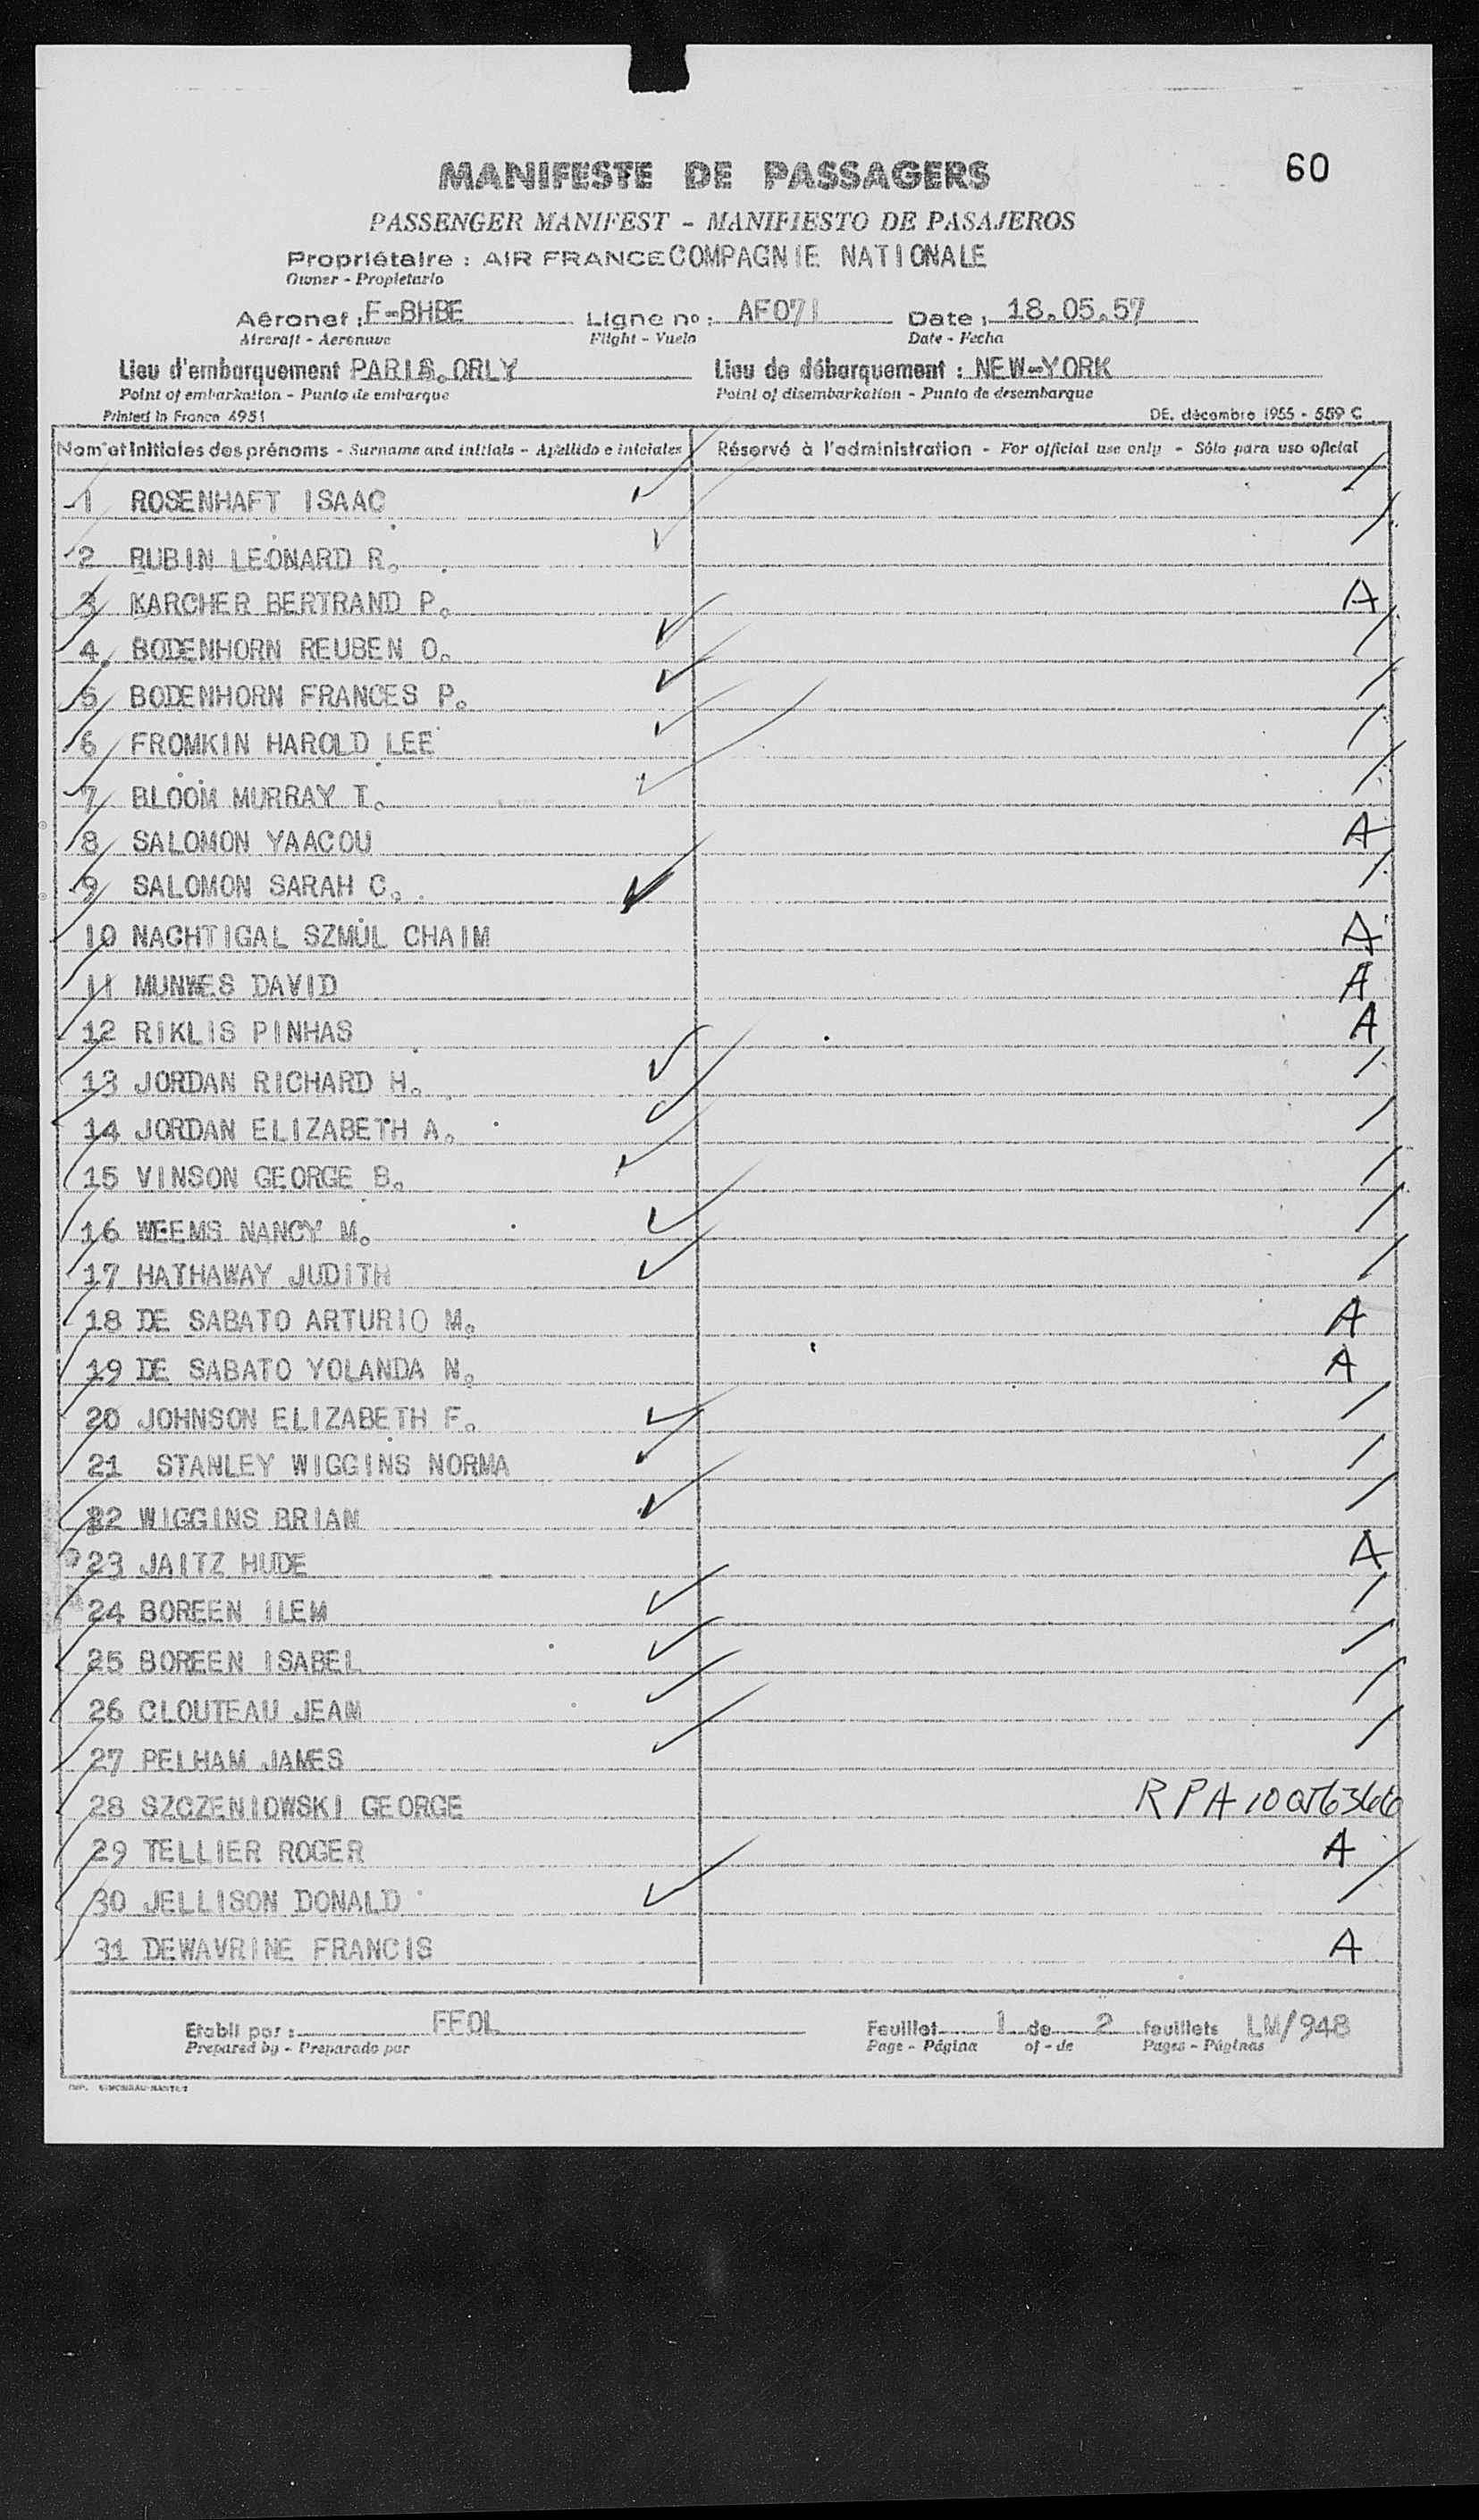 60
MANIFESTE DE PASSAGERS
PASSENGER MANIFEST - MANIFIESTO DE PASAJEROS
Propriétaire : AIR FRANCE COMPAGNIE NATIONALE
Owner - Propietario
Aéronef : F-BHBE Ligne no : AF071 Date : 18.05.57
Aircraft - Aeronave Flight - Vuelo Date - Fecha
Lieu d'embarquement PARIS.ORLY Lieu de débarquement : NEW-YORK
Point of embarkation - Punto de embarque Point of disembarkation - Punto de desembarque
Printed in France 4951 DE. décembre 1955 - 559 C
Nom et initiales des prénoms - Surname and initials - Apellido e iniciales Réservé à l'administration - For official use only - Sólo para uso oficial
1 ROSENHAFT ISAAC
2 RUBIN LEONARD R.
3 KARCHER BERTRAND P. A
4. BODENHORN REUBEN O.
5 BODENHORN FRANCES P.
6 FROMKIN HAROLD LEE
7 BLOOM MURRAY T.
8 SALOMON YAACOU A
9 SALOMON SARAH C.
10 NACHTIGAL SZMUL CHAIM A
11 MUNWES DAVID A
12 RIKLIS PINHAS A
13 JORDAN RICHARD H.
14 JORDAN ELIZABETH A.
15 VINSON GEORGE B.
16 WEEMS NANCY M.
17 HATHAWAY JUDITH
18 DE SABATO ARTURIO M. A
19 DE SABATO YOLANDA N. A
20 JOHNSON ELIZABETH F.
21 STANLEY WIGGINS NORMA
22 WIGGINS BRIAN
23 JAITZ HUDE A
24 BOREEN ILEM
25 BOREEN ISABEL
26 CLOUTEAU JEAM
27 PELHAM JAMES
28 SZCZENIOWSKI GEORGE RPA
29 TELLIER ROGER A
30 JELLISON DONALD
31 DEWAVRINE FRANCIS A
Etabli par : FEOL Feuillet 1 de 2 feuillets LM/948
Prepared by - Preparado por Page - Página of - de Pages - Páginas